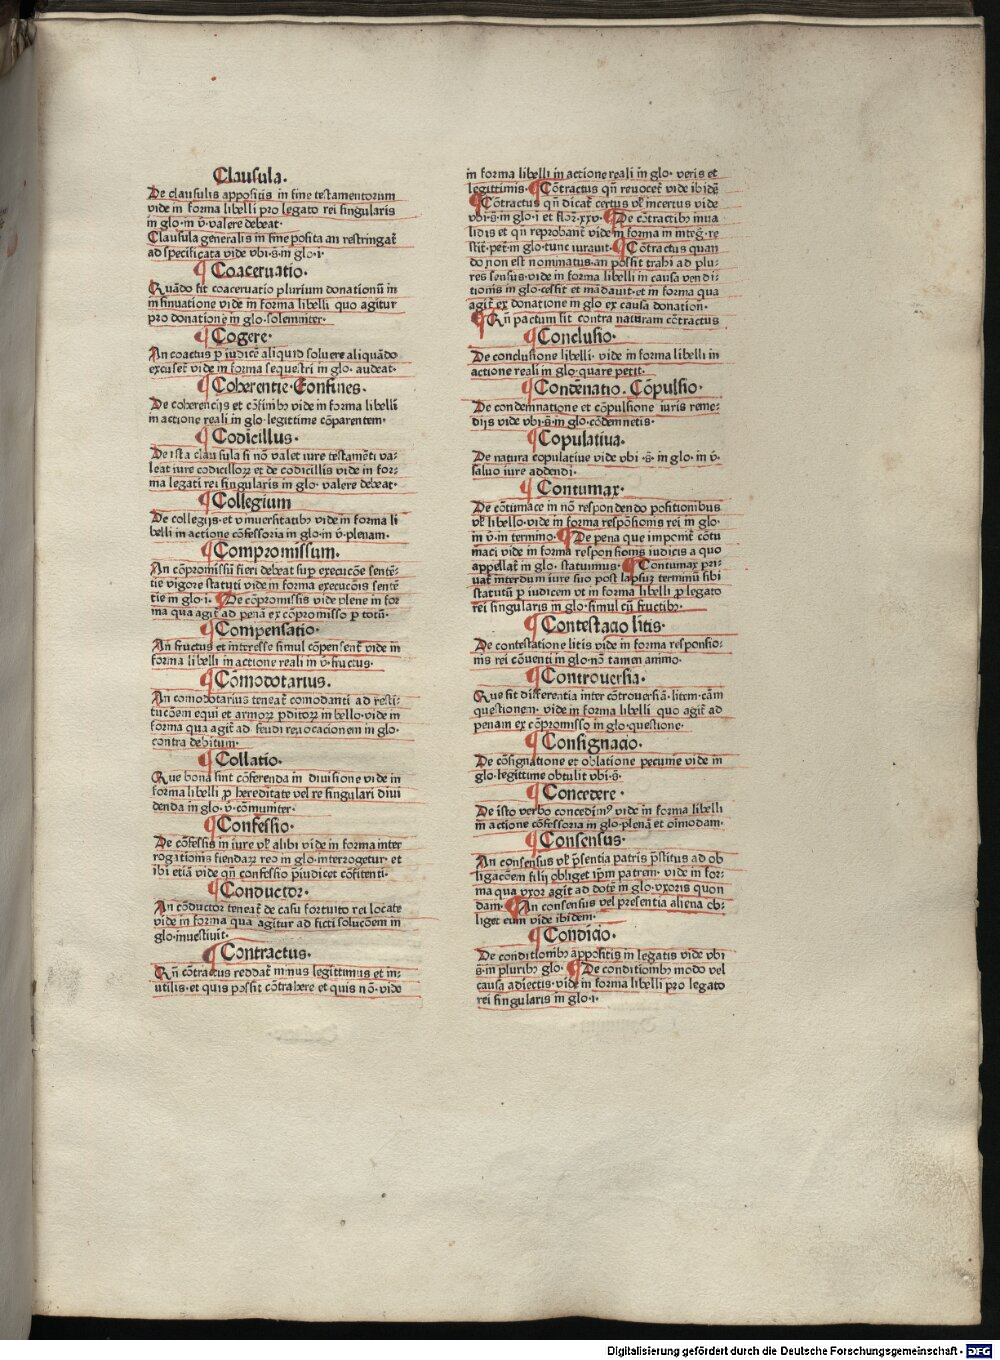 Clausula.
De clausulis appositis in fine testamentorum
vide in forma libelli pro legato rei singularis
in glo·in v̄·valere debeat·
Clausula generalis in fine posita an restringat᷑
ad specificata vide vbi·s̄·in glo·i·
¶ Coaceruatio·
Quādo fit coaceruatio plurium donationū in
insinuatione vide in forma libelli quo agitur
pro donatione in glo·solemniter·
¶ Cogere·
An coactus p̱ iudicē aliquid soluere aliquādo
excuset᷑ vide in forma sequestri in glo· audeat·
¶ Coherentie·Confines·
De coherencijs et cōfinibꝫ vide in forma libelli
in actione reali in glo·legittime cōparentem·
¶ Codicillus·
De ista clausula si nō valet iure testamēti va-
leat iure codicilloꝝ et de codicillis vide in for-
ma legati rei singularis in glo· valere debeat·
¶ Collegium
De collegijs·et vniuersitatibꝫ vide in forma li
belli in actione cōfessoria in glo·in v̄·plenam·
¶ Compromissum.
An cōpromissū fieri debeat sup̱ execucōe sentē-
tie vigore statuti vide in forma execucōis sentē
tie in glo·i· ¶ De cōpromissis vide plene in for
ma qua agit᷑ ad penā ex cōpromisso p̱ totū·
¶ Compensatio·
An fructus et interesse simul cōpensent᷑ vide in
forma libelli in actione reali in v̄·fructus·
¶ Cōmodotarius.
An comodotarius teneat᷑ comodanti ad resti-
tucōem equi et armoꝝ p̱ditoꝝ in bello·vide in
forma qua agit᷑ ad feudi reuocacionem in glo·
contra debitum·
¶ Collatio·
Que bona sint cōferenda in diuisione vide in
forma libelli ꝓ hereditate vel re singulari diui
denda in glo·v̄·cōmuniter·
¶ Confessio·
De cōfessis in iure vꝉ alibi vide in forma inter
rogationis fiendaꝝ reo in glo·interrogetur· et
ibi etiā vide qn̄ confessio p̄iudicet cōfitenti·
¶ Conductor·
An cōductor teneat᷑ de casu fortuito rei locate
vide in forma qua agitur ad ficti solucōem in
glo·inuestiuit·
¶ Contractus·
Qn̄ cōtractus reddat᷑ minus legittimus et in-
utilis·et quis possit cōtrahere et quis nō· vide
in forma libelli in actione reali in glo· veris et
legittimis· ¶ Cōtractus qn̄ reuocet᷑ vide ibidē
¶ Cōtractus qn̄ dicat᷑ certus vꝉ incertus vide
vbi·s̄·in glo·i·et floꝝ·xxv· ¶ De cōtractibꝫ inua
lidis et qn̄ reprobant᷑ vide in forma in integ̱·re
stit·pet·in glo·tunc iurauit· ¶ Cōtractus quan
do non est nominatus·an possit trahi ad plu-
res sensus·vide in forma libelli in causa vendi-
tionis in glo·cessit et mādauit·et in forma qua
agit᷑ ex donatione in glo ex causa donation̄·
¶ Qn̄ pactum sit contra naturam cōtractus
¶ Conclusio·
De conclusione libelli· vide in forma libelli in
actione reali in glo·quare petit·
¶ Condēnatio. Cōpulsio·
De condemnatione et cōpulsione iuris reme-
dijs vide vbi·s̄·in glo·cōdemnetis·
¶ Copulatiua·
De natura copulatiue vide vbi ·s̄· in glo·in v̄·
saluo iure addendi·
¶ Contumax·
De cōtumace in nō respondendo positionibus
vꝉ libello·vide in forma respōsionis rei in glo·
in v̄·in termino· ¶ De pena que imponit᷑ cōtu
maci vide in forma responsionis iudicis a quo
appellat᷑ in glo· statuimus· ¶ Contumax pri-
uat᷑ interdum iure suo post lapsuꝫ terminū sibi
statutū p̱ iudicem vt in forma libelli ꝓ legato
rei singularis in glo·simul cū fructibꝫ·
¶ Contestacio litis·
De contestatione litis vide in forma responsio-
nis rei cōuenti in glo·nō tamen animo·
¶ Controuersia·
Que sit differentia inter cōtrouersiā·litem·cām
questionem· vide in forma libelli quo agit᷑ ad
penam ex cōpromisso in glo·questione·
¶ Consignacio·
De cōsignatione et oblatione pecunie vide in
glo·legittime obtulit vbi·s̄·
¶ Concedere ·
De isto verbo concedimꝰ vide in forma libelli
in actione cōfessoria in glo·plenā et oīmodam·
¶ Consensus·
An consensus vꝉ p̄sentia patris p̄stitus ad ob
ligacōem filij obliget ip̄m patrem· vide in for-
ma qua vxor agit ad dotē in glo·vxoris quon
dam· ¶ An consensus vel presentia aliena ob-
liget eum vide ibidem·
¶ Condicio·
De conditionibꝫ appositis in legatis vide vbi
s̄·in pluribꝫ glo· ¶ De conditionibꝫ modo vel
causa adiectis·vide in forma libelli pro legato
rei singularis in glo·i·
Digitalisierung gefördert durch die Deutsche Forschungsgemeinschaft - DFG